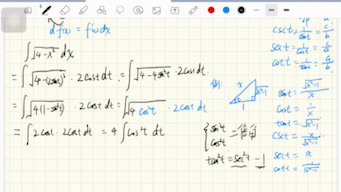 df(x) = f'(x)dx
∫√4-x² dx
= ∫√4-(2sint)² · 2cost dt = ∫√4-4sin²t · 2cost dt.
= ∫√4(1-sin²t) · 2cost dt = ∫√4cos²t · 2cost dt
= ∫2cost · 2cost dt = 4∫cos²t dt
x
√x²-1
1
sin²t
cos²t
tan²t = sec²t - 1
csct =
sect =
cott =
sint = √x²-1/x
cost = 1/x
tant = √x²-1
csct = x/√x²-1
sect = x
cott = 1/√x²-1